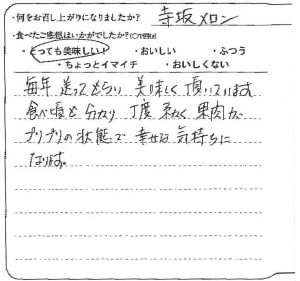 ・何をお召し上がりになりましたか？ 寺坂メロン
・食べたご感想はいかがでしたか？(○で囲む)
・とっても美味しい！ ・おいしい ・ふつう
・ちょっとイマイチ ・おいしくない
毎年 送ってもらい 美味しく 頂いています
食べ頃も 分かり 丁度 柔く 果肉が
プリプリの状態で 幸せな 気持ちに
なります。